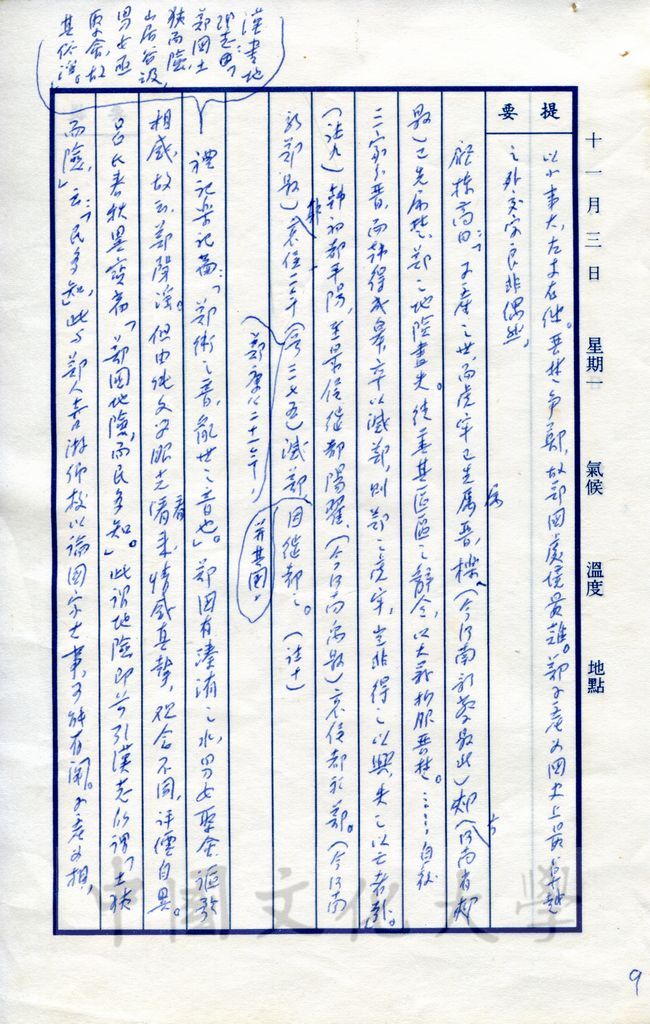 十一月三日 星期一 氣候 溫度 地點
提要
以小事大，左支右絀。晉楚之爭鄭，故鄭國處境最難。鄭子產為國史上最卓越
之外交家良非偶然，
顧棟高曰：「子產之世，而虎牢已先屬晉，櫟（今河南新鄭縣此）郟（河南省郟
縣）已先屬楚，鄭之地險盡失。徒善其區區之辭令，以大義折服晉楚。……自後
三家分晉，而韓得成皋，卒以滅鄭，則鄭之虎牢，豈非得之以興，失之以亡者歟。
（註九）韓初都平陽，至景侯徙都陽翟，（今河南禹縣）哀侯都新鄭。（今河南
新鄭縣）韓哀侯二年（前三七五）滅鄭因徙都之。（註十）
（鄭康公二十一年）
并其國。
禮記樂記篇：「鄭衛之音，亂世之音也」。鄭國有溱洧之水，男女聚會，謳歌
相感，故云鄭聲淫。但由純文學眼光看來，情感真摯，觀念不同，評價自異。
呂氏春秋異寶篇「鄭國地險，而民多知」。此謂地險即前引漢志所謂「土狹
而險，」云：「民多知，此與鄭人喜游鄉校以論國家大事，可能有關。子產為相，
漢書地
理志曰：「
鄭國土
狹而險，
山居谷汲，
男女亟
聚會，故
其俗淫。
中國文化大學
9